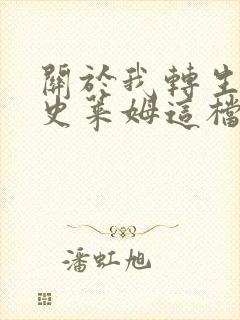 關於我轉生
史萊姆這檔
潘虹旭